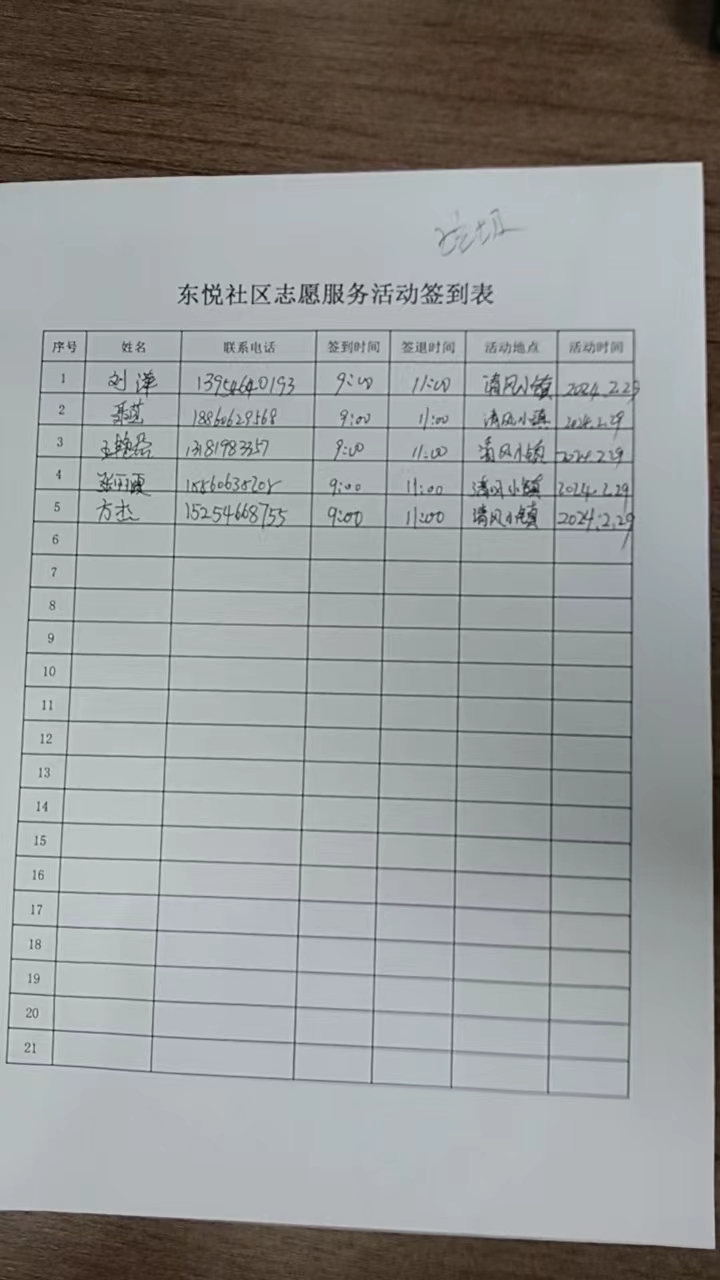 垃圾
东悦社区志愿服务活动签到表
序号 姓名 联系电话 签到时间 签退时间 活动地点 活动时间
1 刘萍 13954640193 9:00 11:00 清风小镇 2024.2.29
2 18860629568 9:00 11:00 清风小镇 2024.2.29
3 13181983357 9:00 11:00 清风小镇 2024.2.29
4 9:00 11:00 清风小镇 2024.2.29
5 方杰 15254668755 9:00 11:00 清风小镇 2024.2.29
6
7
8
9
10
11
12
13
14
15
16
17
18
19
20
21